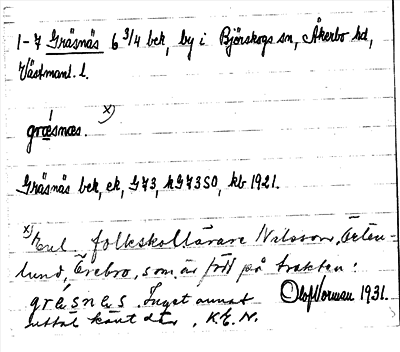 1-7 Gräsnäs 6 3/4 bek, by i Björskogs sn, Åkerbo hd,
Västmanl. l.
græsnæs. x)
Gräsnäs bek, ek, G73, kG73SO, kb 1921.
x) Enl. folkskollärare Nilsson, Örten-
lund, Örebro, som är född på trakten:
græsnæs. Inget annat Olof Norman 1931.
uttal känt där. K.E.N.